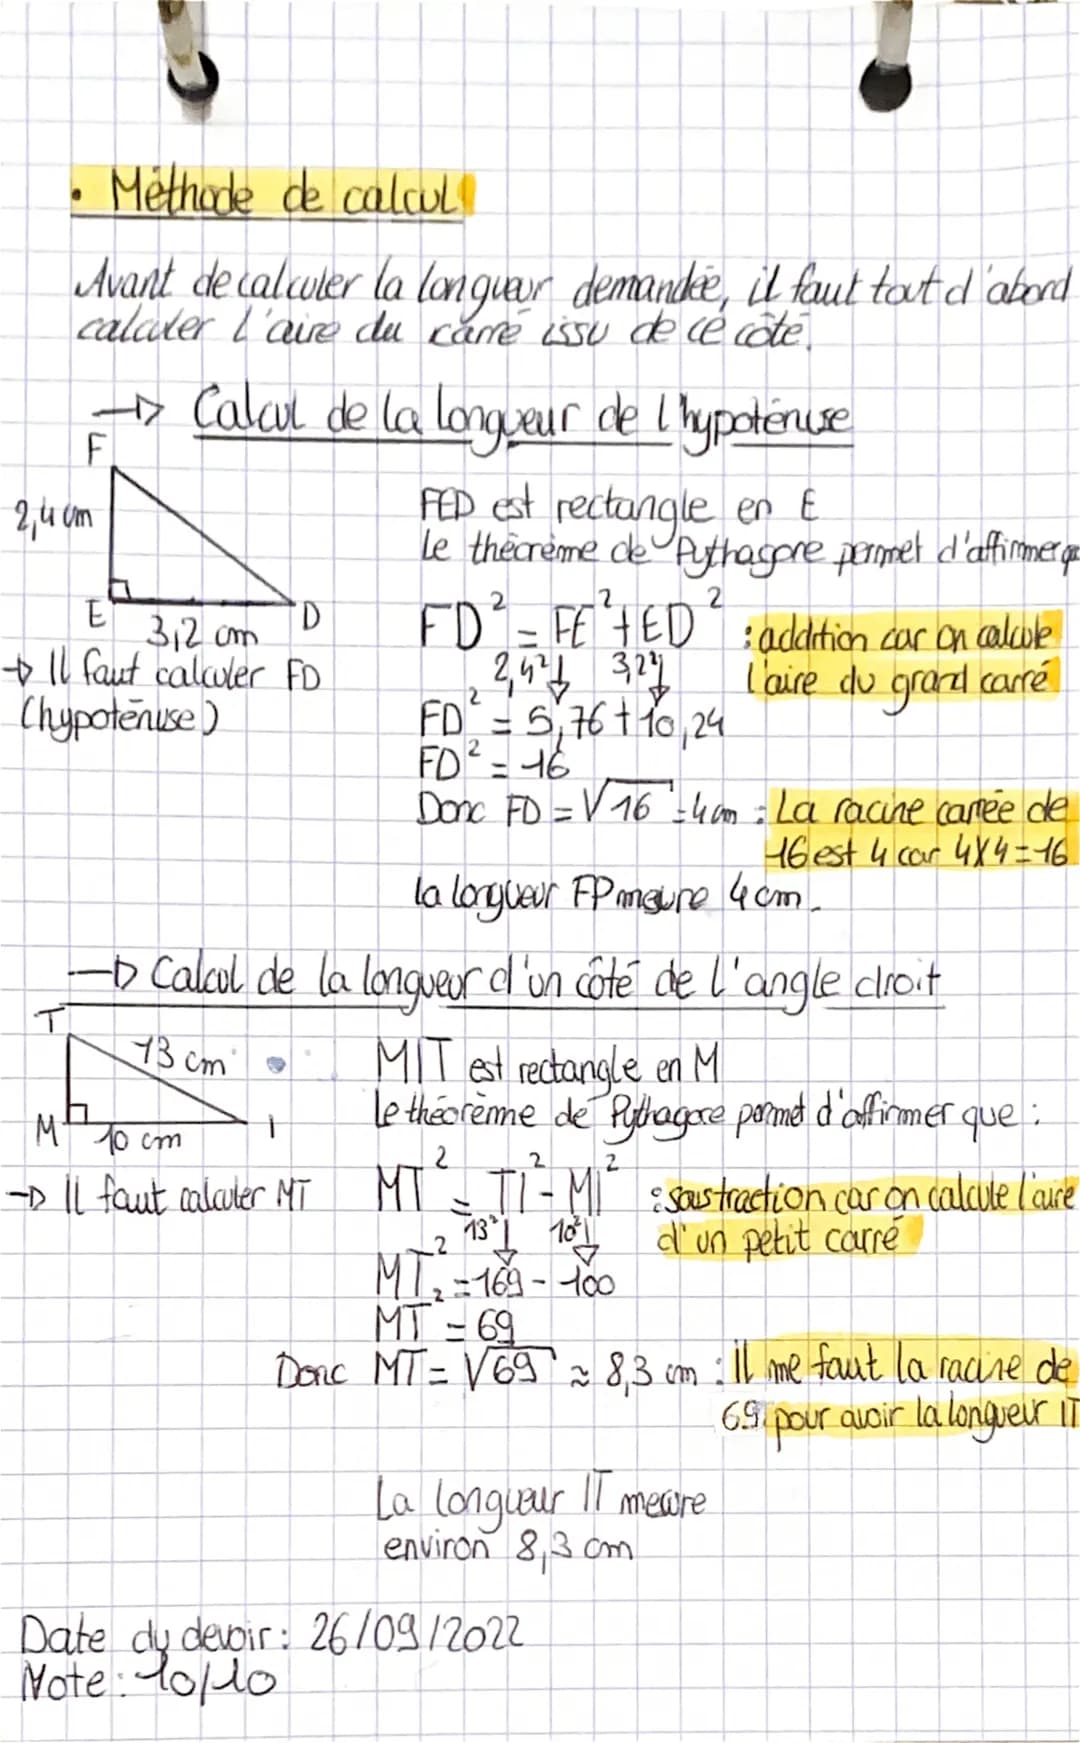 • Méthode de calcul
Avant de calculer la longueur demandée, il faut tout d'abord
calculer l'aire du carré issu de ce côté.
→ Calcul de la longueur de l'hypoténuse
F
2,4 cm
E
3,2 cm
D
→ Il faut calculer FD
(hypoténuse)
FED est rectangle en E
Le théorème de Pythagore permet d'affirmer que
FD² = FE² + ED² : addition car on calcule
l'aire du grand carré
2,4² ↓ 3,2² ↓
FD² = 5,76 + 10,24
FD² = 16
Donc FD = √16 = 4 cm : La racine carrée de
16 est 4 car 4×4=16
la longueur FD mesure 4 cm.
→ Calcul de la longueur d'un côté de l'angle droit
T
13 cm
M
10 cm
I
→ Il faut calculer MT
MIT est rectangle en M
Le théorème de Pythagore permet d'affirmer que :
MT² = TI² - MI² : soustraction car on calcule l'aire
d'un petit carré
13² ↓ 10² ↓
MT² = 169 - 100
MT² = 69
Donc MT = √69 ≈ 8,3 cm : Il me faut la racine de
69 pour avoir la longueur IT
La longueur IT mesure
environ 8,3 cm
Date du devoir : 26/09/2022
Note : 10/10